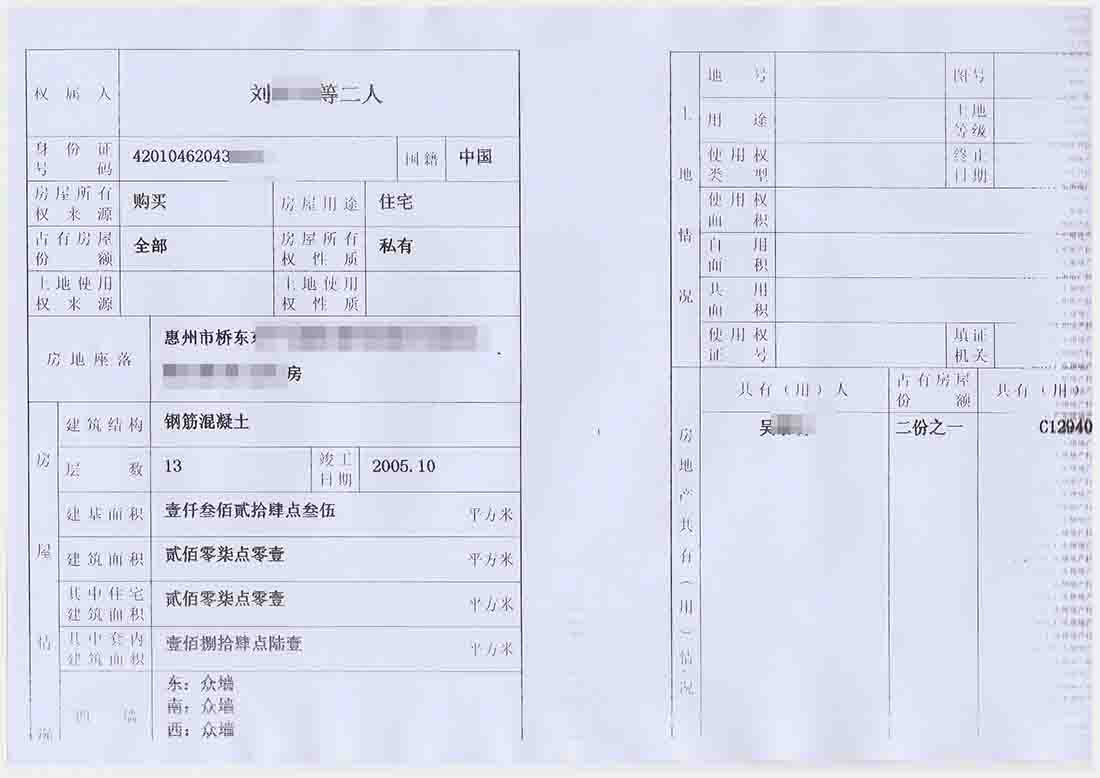 权属人 刘 等二人
身份证号码 42010462043 国籍 中国
房屋所有权来源 购买 房屋用途 住宅
占有房屋份额 全部 房屋所有权性质 私有
土地使用权来源 土地使用权性质
房地座落 惠州市桥东
房
房屋情况
建筑结构 钢筋混凝土
层数 13 竣工日期 2005.10
建基面积 壹仟叁佰贰拾肆点叁伍 平方米
建筑面积 贰佰零柒点零壹 平方米
其中住宅建筑面积 贰佰零柒点零壹 平方米
其中套内建筑面积 壹佰捌拾肆点陆壹 平方米
四墙 东：众墙
南：众墙
西：众墙
土地情况
地号 图号
用途 土地等级
使用权类型 终止日期
使用权面积
自用面积
共用面积
使用权证号 填证机关
房地产共有(用)情况
共有(用)人 占有房屋份额 共有(用)
吴 二份之一 C12940